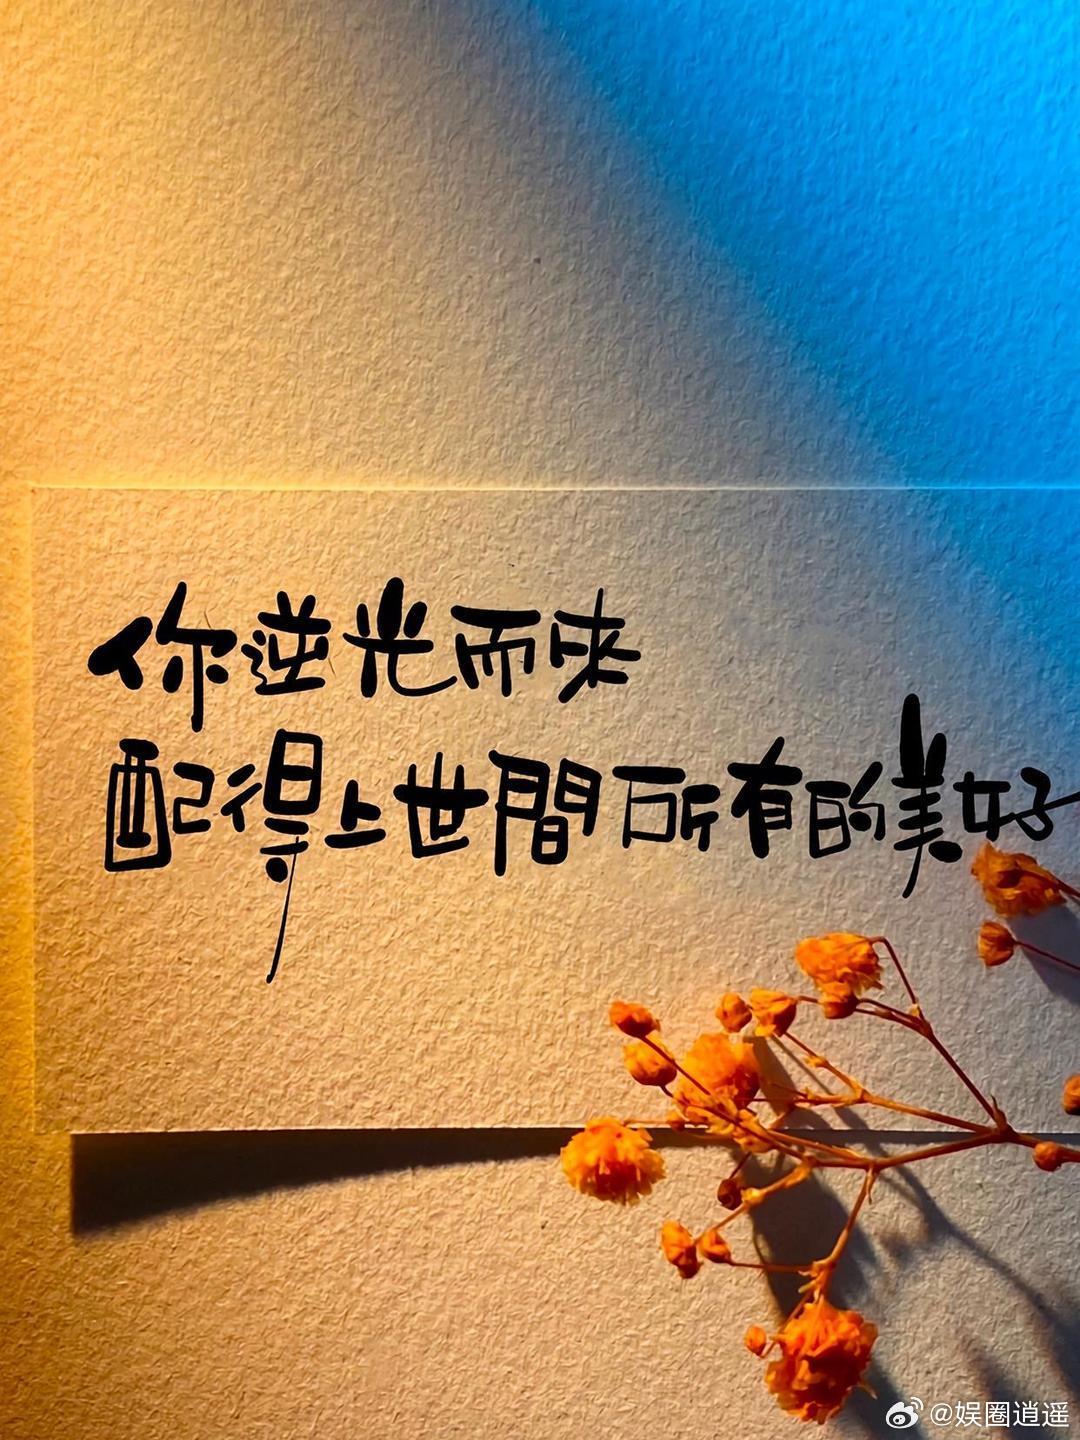 你逆光而來
配得上世間所有的美好
@娱圈逍遥